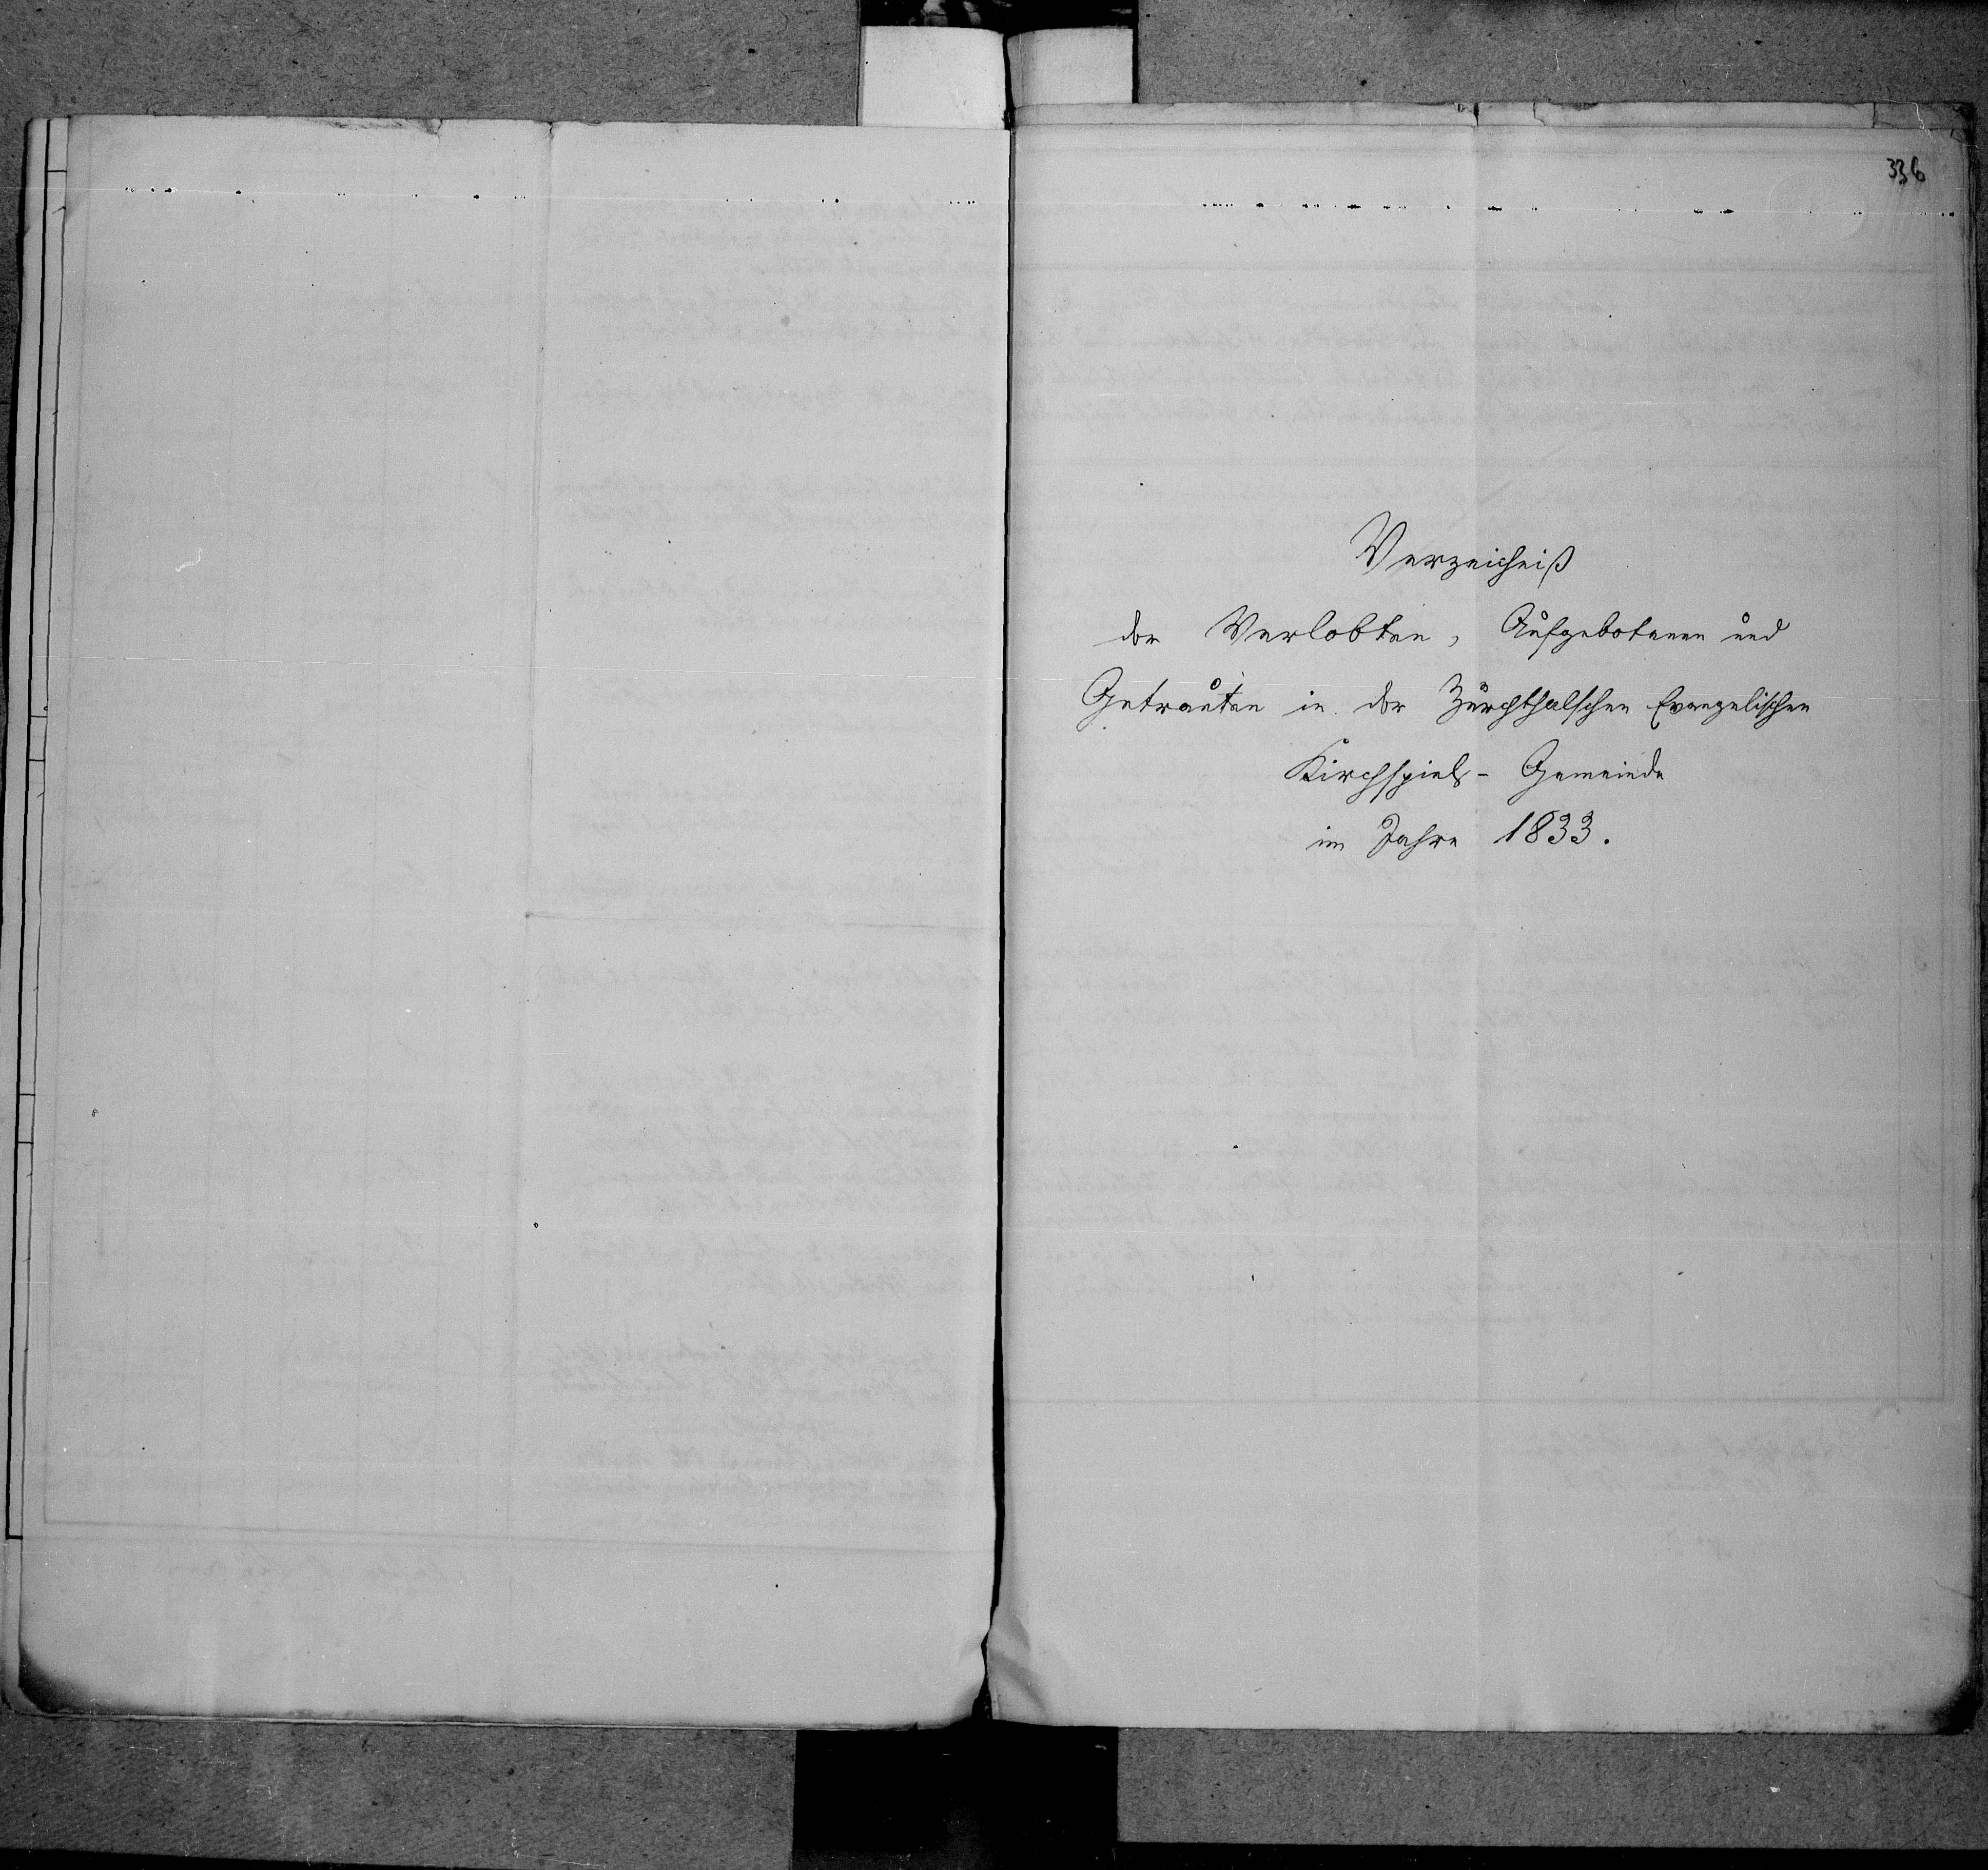 336
Verzeichniß
der Verlobten, Aufgebotenen und
Getrauten in der Zürchthalschen Evangelischen
Kirchspiels- Gemeinde
im Jahre 1833.